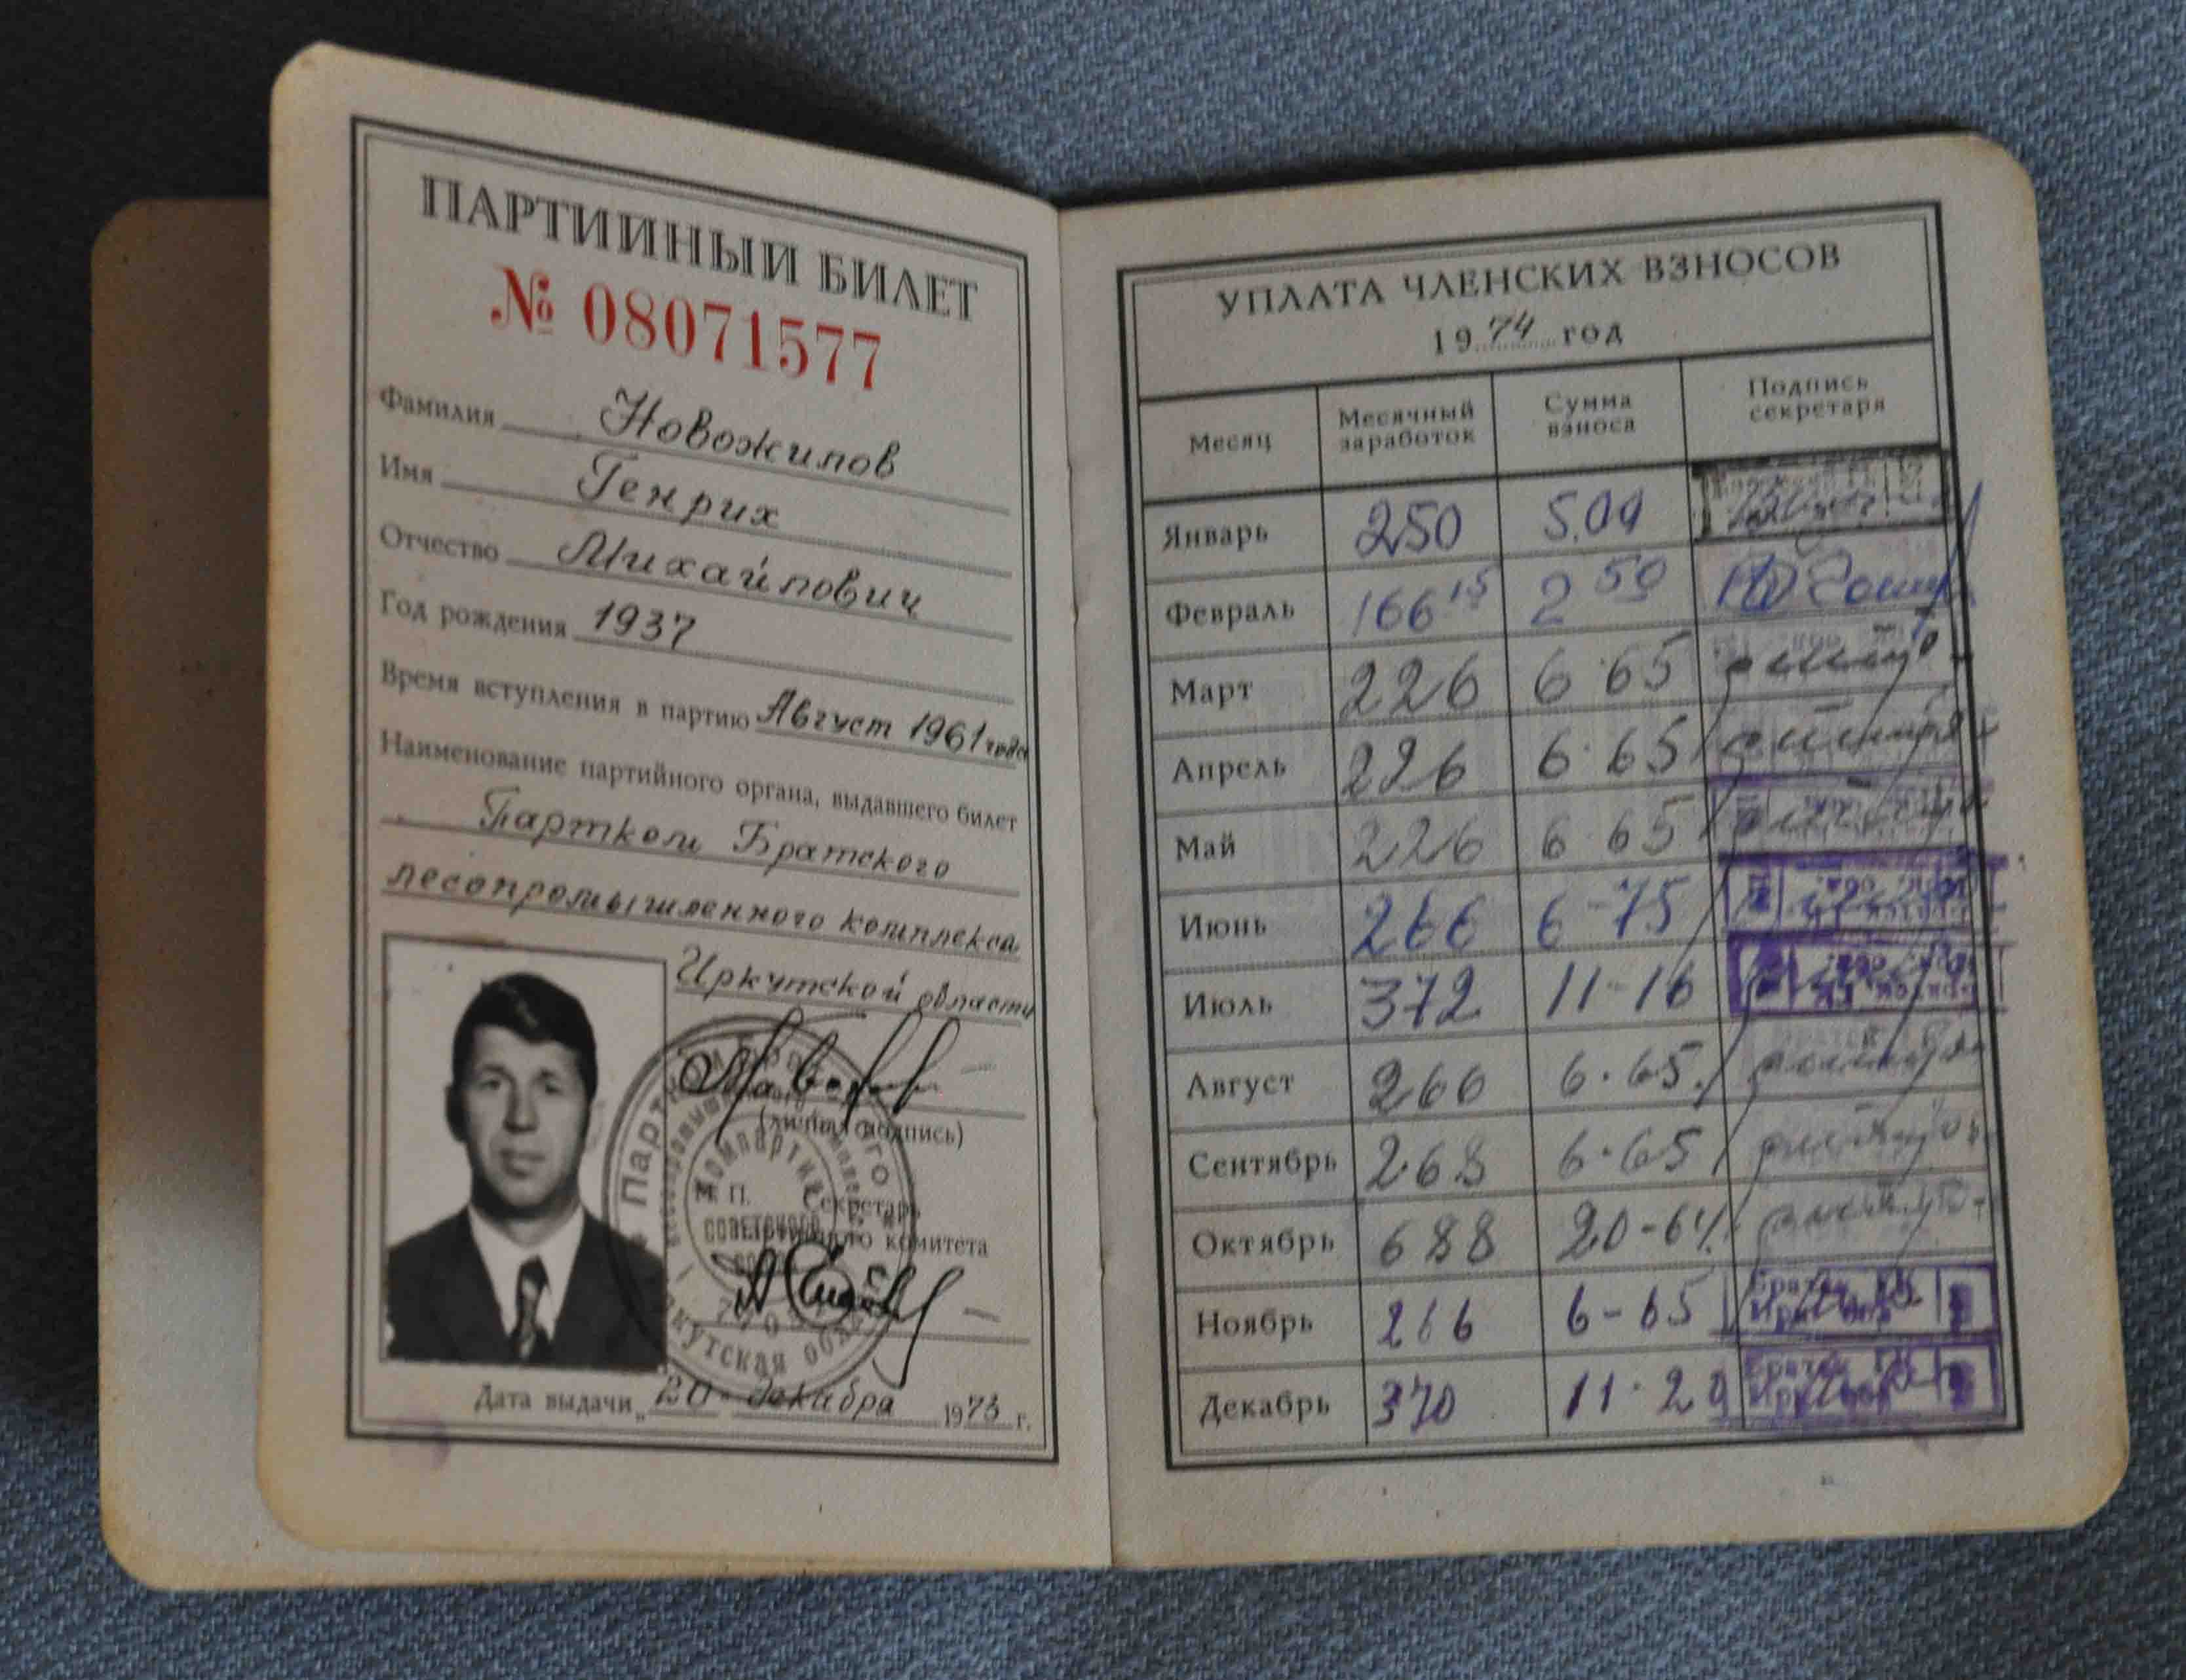 ПАРТИЙНЫЙ БИЛЕТ
№ 08071577
Фамилия Новожилов
Имя Генрих
Отчество Михайлович
Год рождения 1937
Время вступления в партию Август 1961 года
Наименование партийного органа, выдавшего билет
Партком Братского
лесопромышленного комплекса
Иркутской области
(личная подпись)
М. П. Секретарь
партийного комитета
Дата выдачи „20" декабря 1973 г.
УПЛАТА ЧЛЕНСКИХ ВЗНОСОВ
1974 год
Месяц Месячный заработок Сумма взноса Подпись секретаря
Январь 250 5,00
Февраль 166 15 2 50
Март 226 6 65
Апрель 226 6·65
Май 226 6 65
Июнь 266 6-75
Июль 372 11-16
Август 266 6·65
Сентябрь 268 6·65
Октябрь 688 20-64
Ноябрь 266 6-65
Декабрь 370 11·20